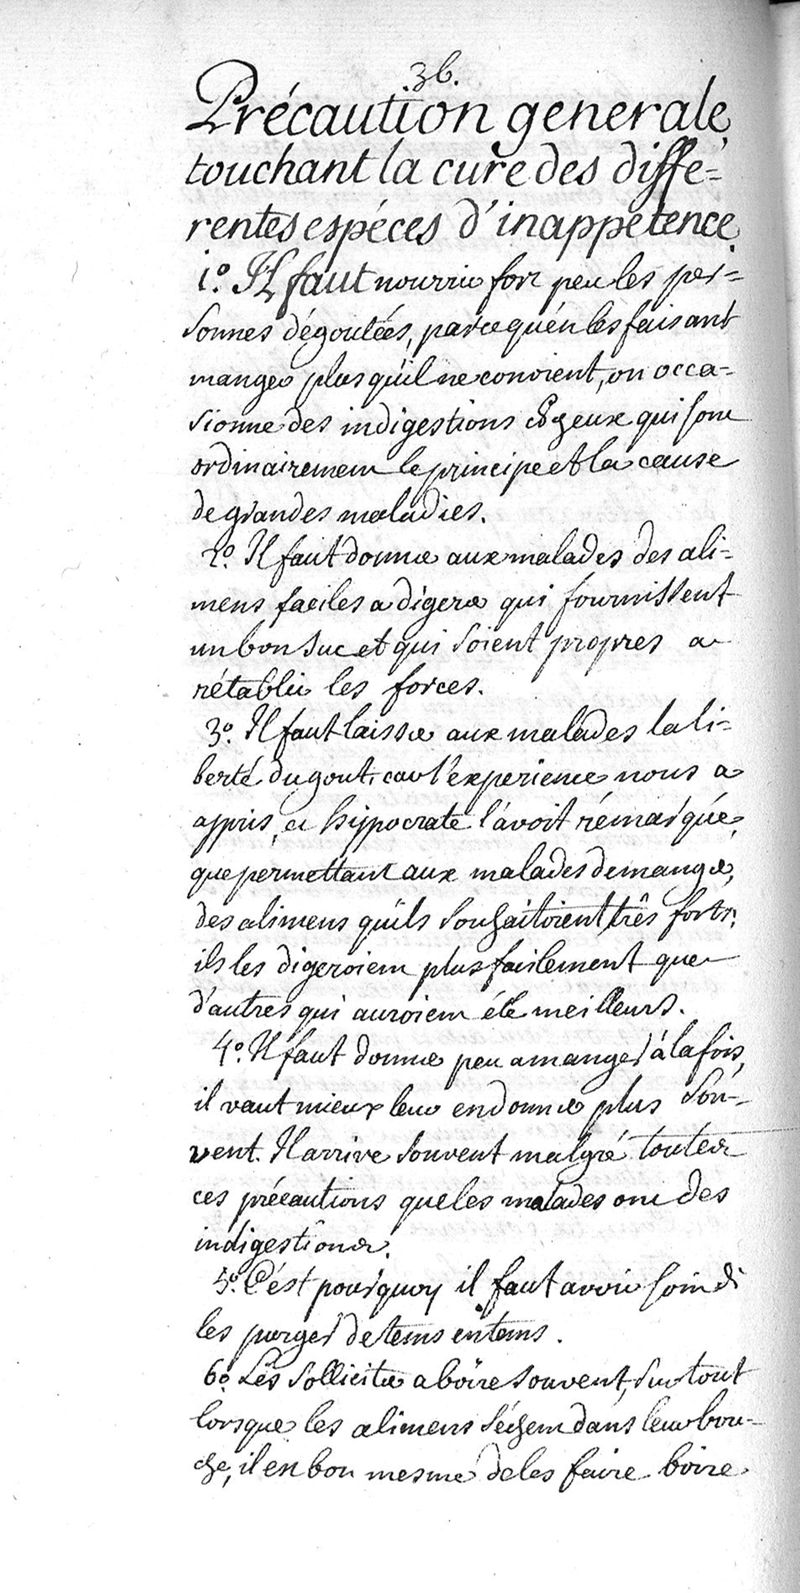 .36.
Précaution generale,
touchant la cure des diffe=
rentes espéces d'inappétence.
1.º Il faut nourrir fort peu les per=
sonnes dégoutées, parcequ'en les faisant
manger plus qu'il ne convient, on occa=
sionne des indigestions qui sont
ordinairement le principe et la cause
de grandes maladies.
2.º Il faut donner aux malades des ali=
mens faciles a digerer qui fournissent
un bon suc et qui soient propres a
rétablir les forces.
3.º Il faut laisser aux malades la li=
berté du gout, car l'experience nous a
appris, et hyppocrate l'avoit rémarqué,
que permettant aux malades de manger,
des alimens qu'ils souhaitoient três forts,
ils les digeroient plus facilement que
d'autres qui auroient été meilleurs.
4.º Il faut donner peu a manger à la fois,
il vaut mieux leur en donner plus sou=
vent. Il arrive souvent malgré toutes
ces précautions que les malades ont des
indigestions.
5.º C'ést pourquoy il faut avoir soin de
les purger de tems en tems.
6.º Les solliciter a boire souvent, sur tout
lorsque les alimens séchent dans leur bou=
che, il en bon mesme de les faire boire